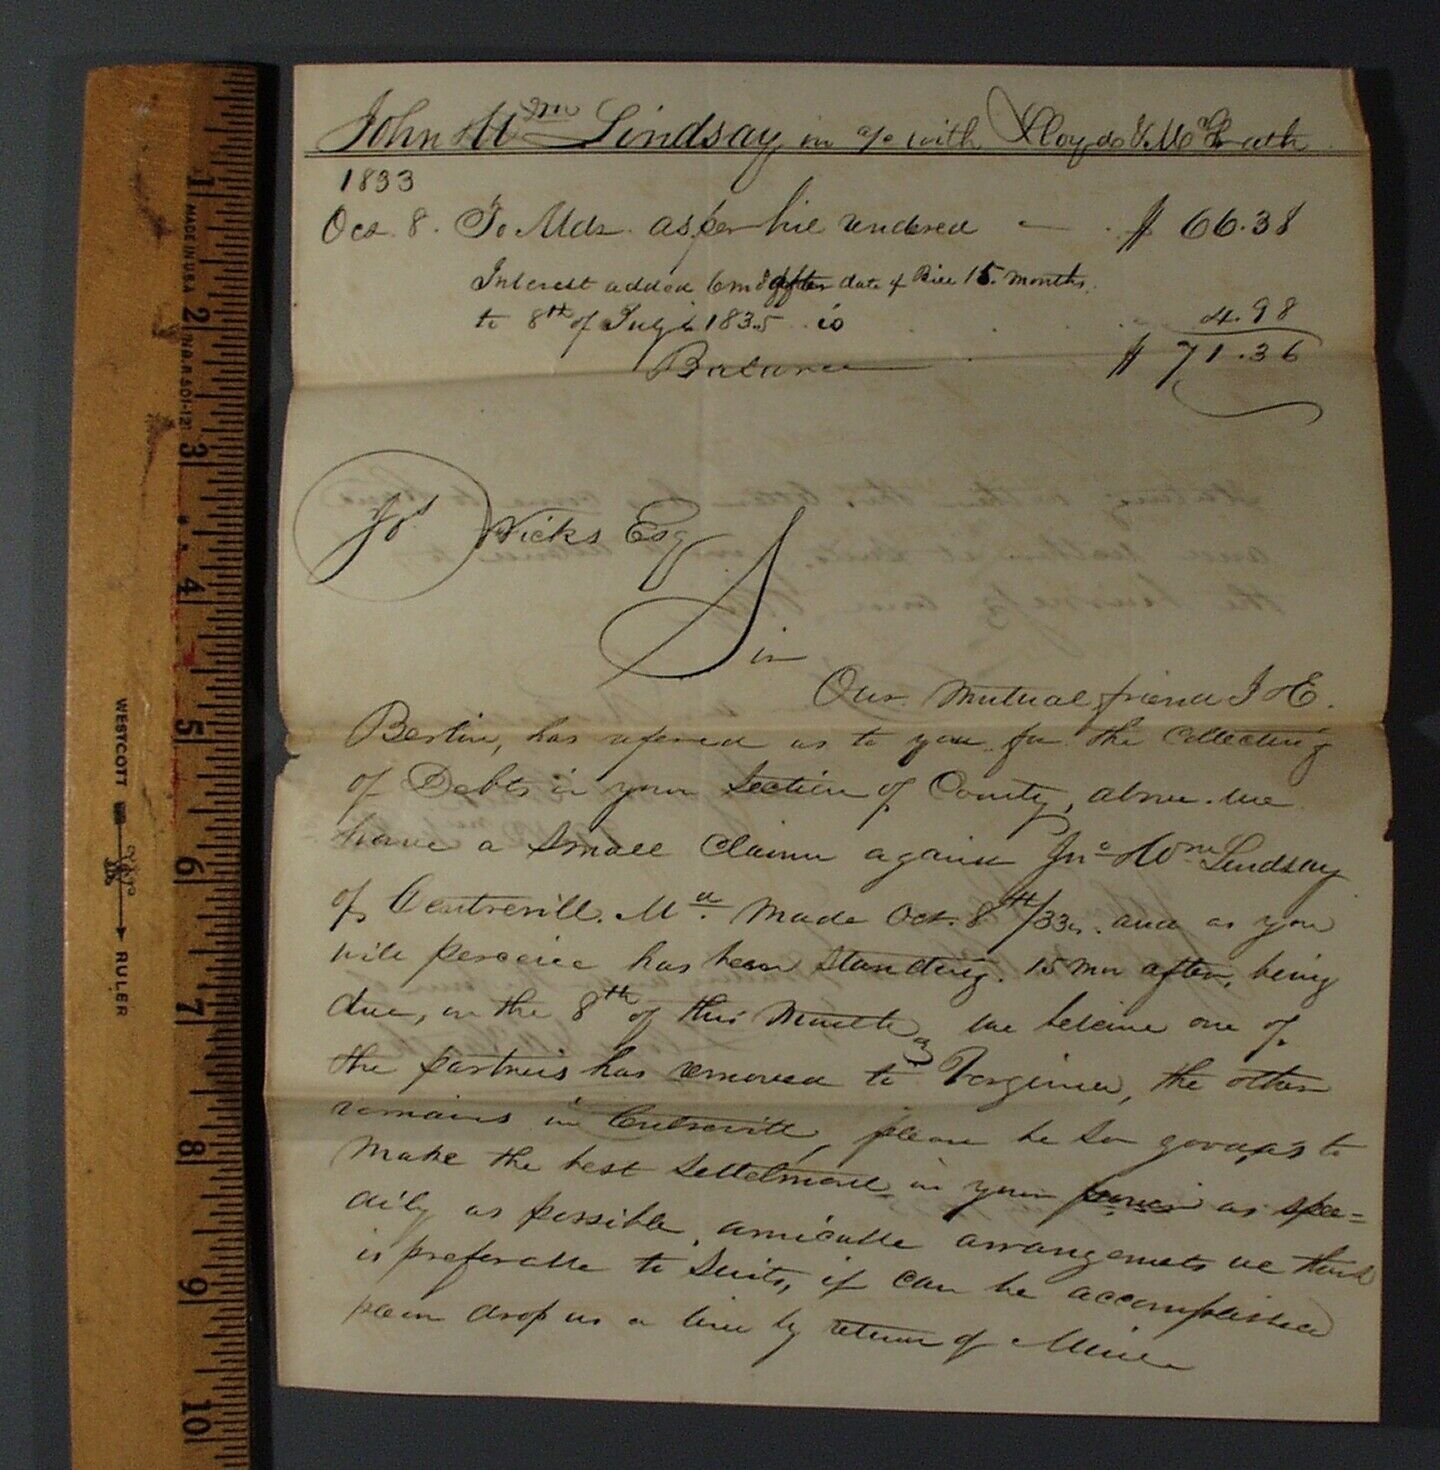 John & Wm Lindsay in a/c with Lloyds & McGrath
1833
Oct. 8. To Mds. as per bill rendered $ 66.38
Interest added 6 mos after date of Bill 15 months
to 8th of July 1835 is 4.98
Balance $ 71.36
Jos Wicks Esq
Sir
Our mutual friend J E.
Bertin, has refered us to you for the Collecting
of Debts in your Section of County, above we
have a small claim against Jno & Wm Lindsay
of Centrevill Md. Made Oct. 8th/33. and as you
will perceive has been standing. 15 Mo after, being
due, on the 8th of this Month, we beleive one of
the partners has removed to Verginia, the other
remains in Centrevill, please be so good, as to
make the best settelment in your as spee=
dily as possible, amicable arrangemets we think
is preferable to suits, if can be accomplished
pleas drop us a line by return of Maile
MADE IN USA
N.B.R. & 01-12
WESTCOTT RULER
1 2 3 4 5 6 7 8 9 10